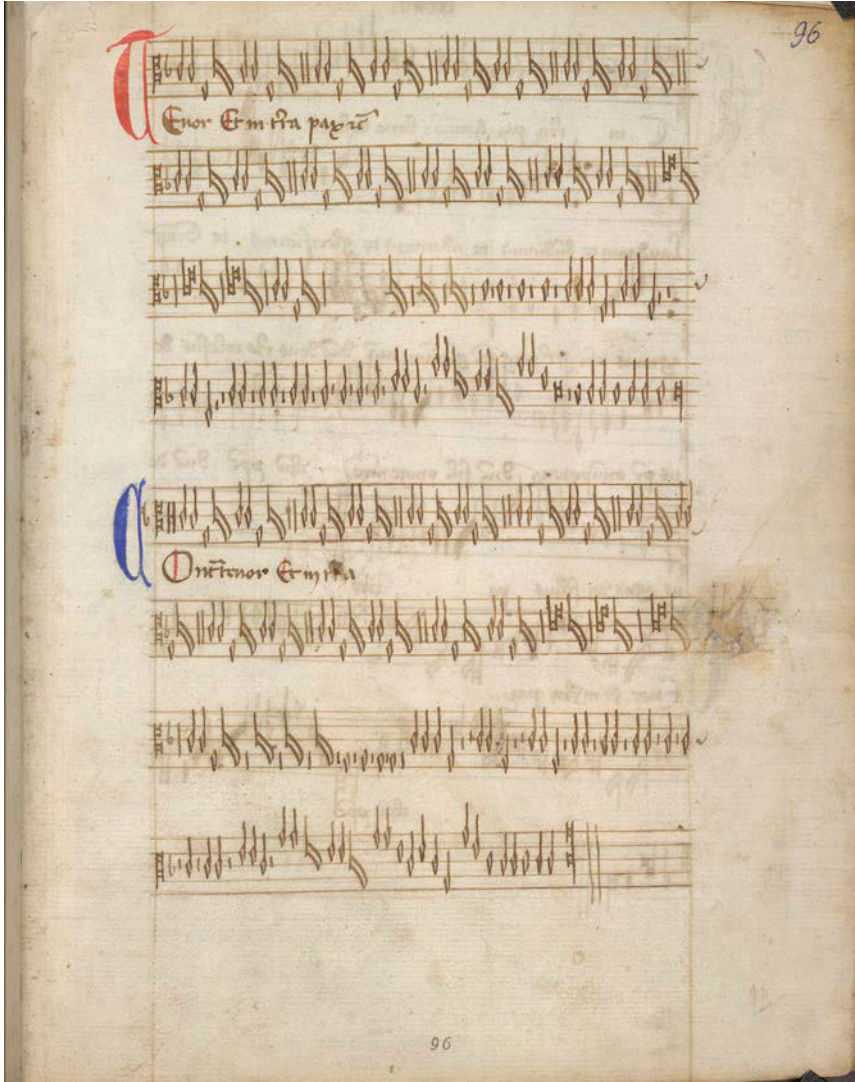 96
Tenor Et in tr̃a pax ⁊c̃
Contr̃tenor Et in tr̃a
96